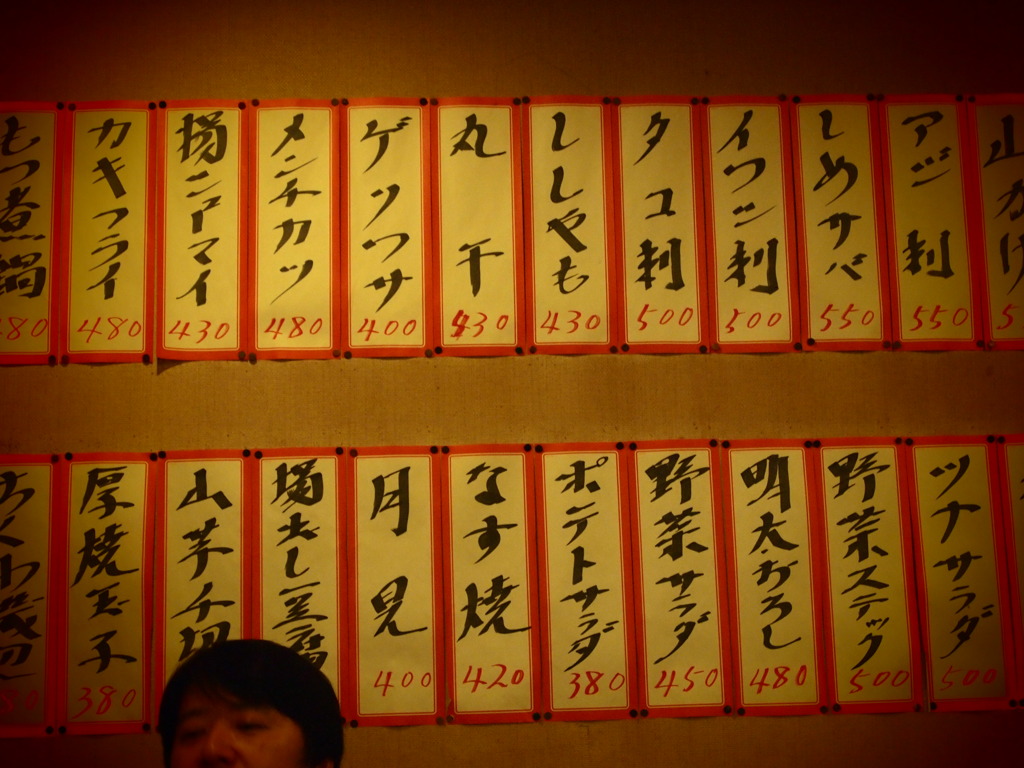 山かけ
5
アジ刺
550
しめサバ
550
イワシ刺
500
タコ刺
500
ししゃも
430
丸干
430
ゲソワサ
400
メンチカツ
480
揚シューマイ
430
カキフライ
480
もつ煮鍋
480
ツナサラダ
500
野菜スティック
500
明太おろし
480
野菜サラダ
450
ポテトサラダ
380
なす焼
420
月見
400
揚出し豆腐
山芋千切
厚焼玉子
380
80